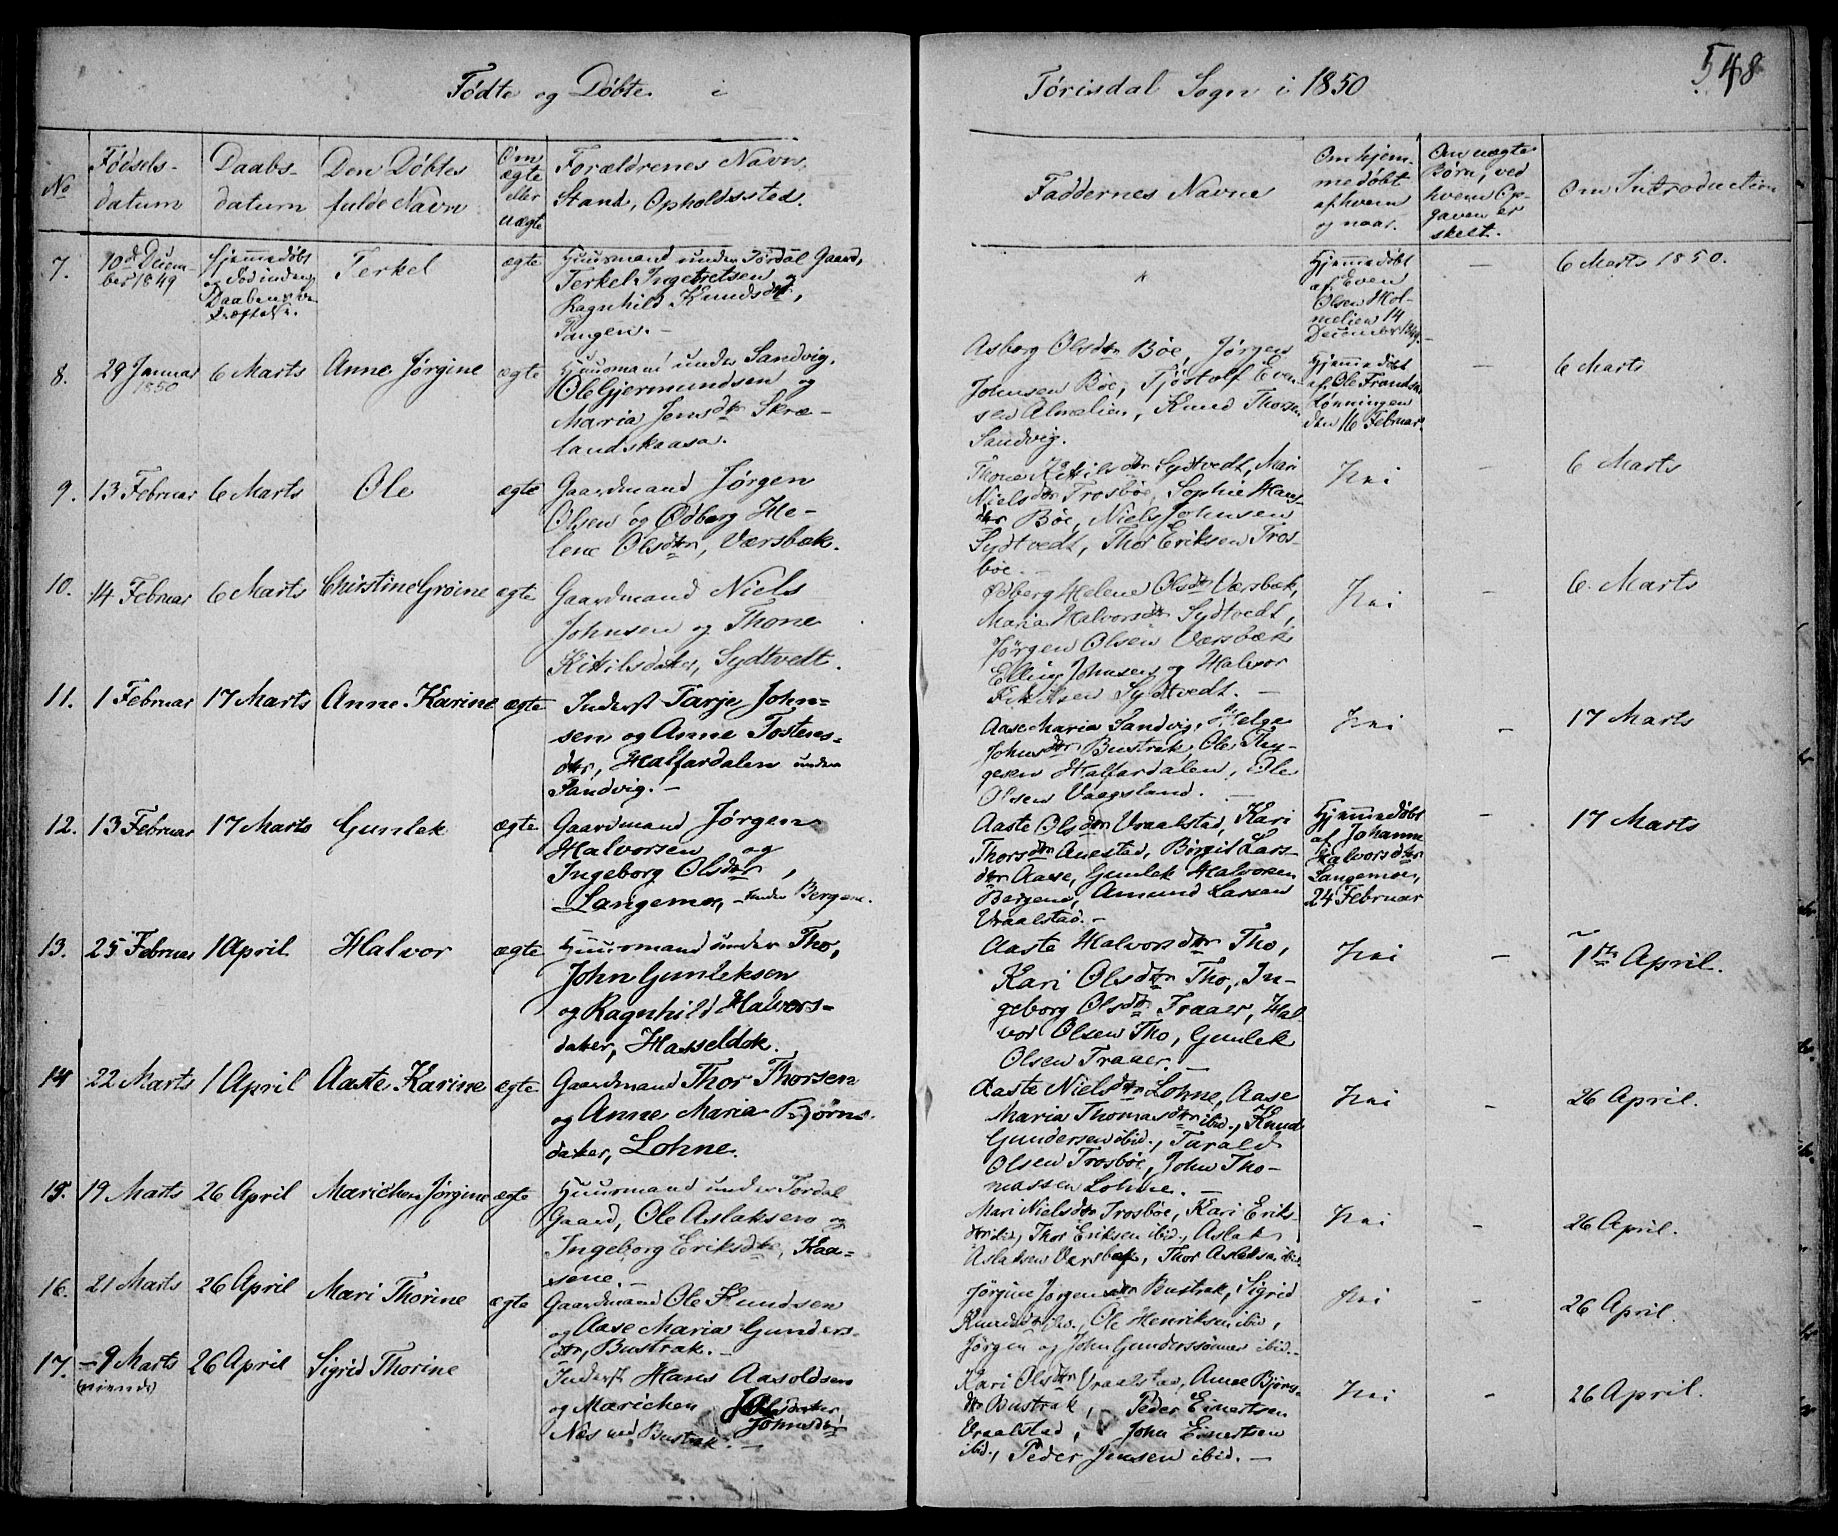 548
Fødte og Døbte i Tørisdal Sogn i 1850
No
Føisels-
datum
Daabs-
datum
Den Døbtes
fulde Navn
Om
ægte
eller
uægte
Forældrenes Navn,
Stand, Opholdssted.
Faddernes Navne
Om hjem-
medøbt
af hvem
og naar.
Om uægte
Børn, ved
hvem Op-
gaven er
skelt.
Om Introduction
7.
10d Decem-
ber 1849
Hjemmedøbt
og død inden
Daabens be-
kræftelse.
Terkel
ægte
Huusmand under Tørdal Gaard,
Terkel Ingebretsen og
Ragnhild Knudsdtr,
Tangen. -
Hjemmedøbt
af Even
Olsen Hol-
melien 14
December 1849.
-
6 Marts 1850.
8.
29 Januar
1850
6 Marts
Anne Jørgine
ægte
Huusmand under Sandvig.
Ole Gjermundsen og
Maria Jensdtr Skræ-
landskaasa.
Asborg Olsdtr Bøe, Jørgen
Johnsen Bøe, Tjøstolf Even-
sen Almelien, Knud Thorsen
Sandvig.
Hjemmedøbt
af Ole Frandsen
Lønningen
den 16 Februar.
-
6 Marts
9.
13 Februar
6 Marts
Ole
ægte
Gaardmand Jørgen
Olsen og Ødberg He-
lene Olsdtr, Værsbæk.
Thone Kittilsdtr Sydtvedt, Mari
Nielsdtr Trosbøe, Sophie Hans-
dtr Bøe, Niels Johnsen
Sydtvedt, Thor Eriksen Tros-
bøe. -
Nei
-
6 Marts
10.
14 Februar
6 Marts
Christine Grøine
ægte
Gaardmand Niels
Johnsen og Thone
Kittilsdatter, Sydtvedt.
Ødberg Helene Olsdtr Værsbæk,
Maria Halvorsdtr Sydtvedt,
Jørgen Olsen Værsbæk
Elling Johnsen og Halvor
Sydtvedt. -
Nei
-
6 Marts
11.
1 Februar
17 Marts
Anne Karine
ægte
Inderst Tarje John-
sen og Anne Tostens-
dtr, Halfardalen under
Sandvig. -
Aase Maria Sandvig, Helge
Johnsdtr Bustrak, Ole Thy-
gesen Halfardalen, Ole
Olsen Vaagsland. -
Nei
-
17 Marts
12.
13 Februar
17 Marts
Gunlek
ægte
Gaardmand Jørgen
Halvorsen og
Ingeborg Olsdtr,
Langemoe, - under Bergene.
Aaste Olsdtr Vraalstad, Kari
Thorsdtr Anestad, Børgit Lars-
dtr Aase, Gunlek Halvorsen
Bergene, Amund Larsen
Vraalstad. -
Hjemmedøbt
af Johanne
Halvorsdtr
Langemoe,
24 Februar
-
17 Marts
13.
25 Februar
1 April
Halvor
ægte
Huusmand under Tho,
John Gunleksen
og Ragnhild Halvors-
datter, Hasseldok.
Aaste Halvorsdtr Tho,
Kari Olsdtr Tho, In-
geborg Olsdtr Fraaer, Hal-
vor Olsen Tho, Gunlek
Olsen Traaer. -
Nei
-
1ste April.
14
22 Marts
1 April
Aaste Karine
ægte
Gaardmand Thor Thorsen
og Anne Maria Bjørns-
datter, Lohne.
Aaste Nielsdtr Lohne, Aase
Maria Thomasdtr ibid., Knud
Gundersen ibid., Tarald
Olsen Trosbøe, John Tho-
massen Lohne. -
Nei
-
26 April.
15.
19 Marts
26 April
Marichen Jørgine
ægte
Huusmand under Tørdal
Gaard, Ole Aslaksen og
Ingeborg Eriksdtr, Kaa-
sene. -
Mari Nielsdtr Trosbøe, Kari Eriks-
dtr ibid., Thor Eriksen ibid., Aslak
Aslaksen Værsbæk, Thor Aslaksen ibid.
Nei
-
26 April.
16.
21 Marts
26 April
Mari Thorine
ægte
Gaardmand Ole Knudsen
og Aase Maria Gunders-
dtr, Bustrak. -
Jørgine Jørgensdtr Bustrak, Sigrid
Knudsdtr ibid., Ole Henriksen ibid.,
Jørgen og John Gunderssønner ibid. -
Nei
-
26 April.
17.
- 9 Marts
(niende)
26 April
Sigrid Thorine
Inderst Hans Aasoldsen
og Marichen
Johnsdtr
Næs ved Bustrak. -
Kari Olsdtr Vraalstad, Anne Bjørns-
dtr Bustrak, Peder Einertsen
Vraalstad, John Einertsen
ibid., Peder Jensen ibid. -
Nei
-
26 April.